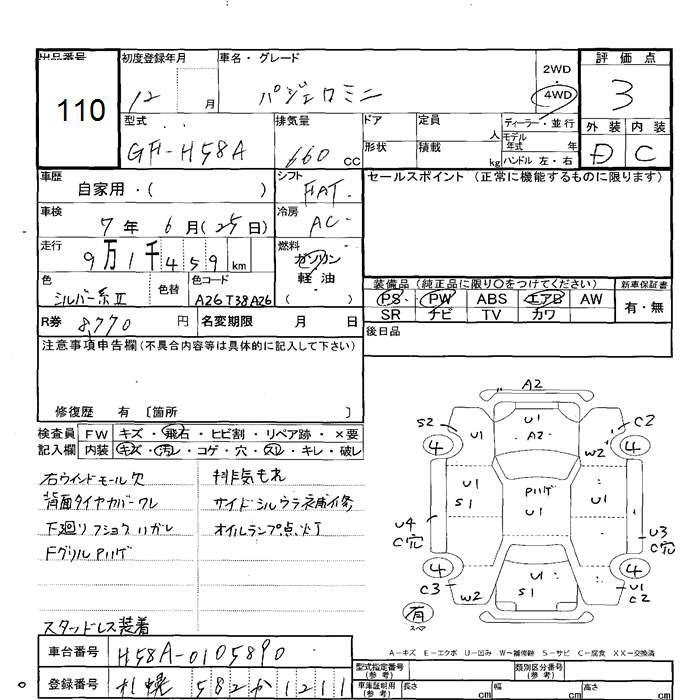 出品番号 110
初度登録年月 12 月
車名・グレード パジェロミニ
2WD・4WD
評価点 3
型式 GF-H58A
排気量 660 cc
ドア 形状
定員 人 積載 kg
ディーラー・並行
モデル年式 年
ハンドル 左・右
外装 D 内装 C
車歴 自家用・( )
シフト FAT
セールスポイント (正常に機能するものに限ります)
車検 7年 6月(25日)
冷房 AC
走行 9万1千459 km
燃料 ガソリン 軽油 ( )
色 シルバー系Ⅱ 色替 色コード A26T38A26
装備品(純正品に限り○をつけてください) 新車保証書
PS PW ABS エアB AW 有・無
SR ナビ TV カワ
R券 8,770 円 名変期限 月 日
後日品
注意事項申告欄(不具合内容等は具体的に記入して下さい)
修復歴 有 〔箇所 〕
検査員 FW キズ・飛石・ヒビ割・リペア跡・×要
記入欄 内装 キズ・汚レ・コゲ・穴・スレ・キレ・破レ
右ウインドモール欠 排気もれ
背面タイヤカバーワレ サイドシルウラ
下廻りフショクハガレ オイルランプ点灯
FグリルPハゲ
スタッドレス装着
A2
U1
A2
S2 U1 W2 C2
4 4
U1 S1 PハゲU1 U1
U4 C穴 U3 C穴
4 4
C3 W2 U1 S1 U1 C2
有 スペア
A-キズ E-エクボ U-凹み W-補修跡 S-サビ C-腐食 XX-交換済
車台番号 H58A-0105890
型式指定番号(参考) 類別区分番号(参考)
登録番号 札幌 582か1211
車庫証明用(参考) 長さ cm 幅 cm 高さ cm